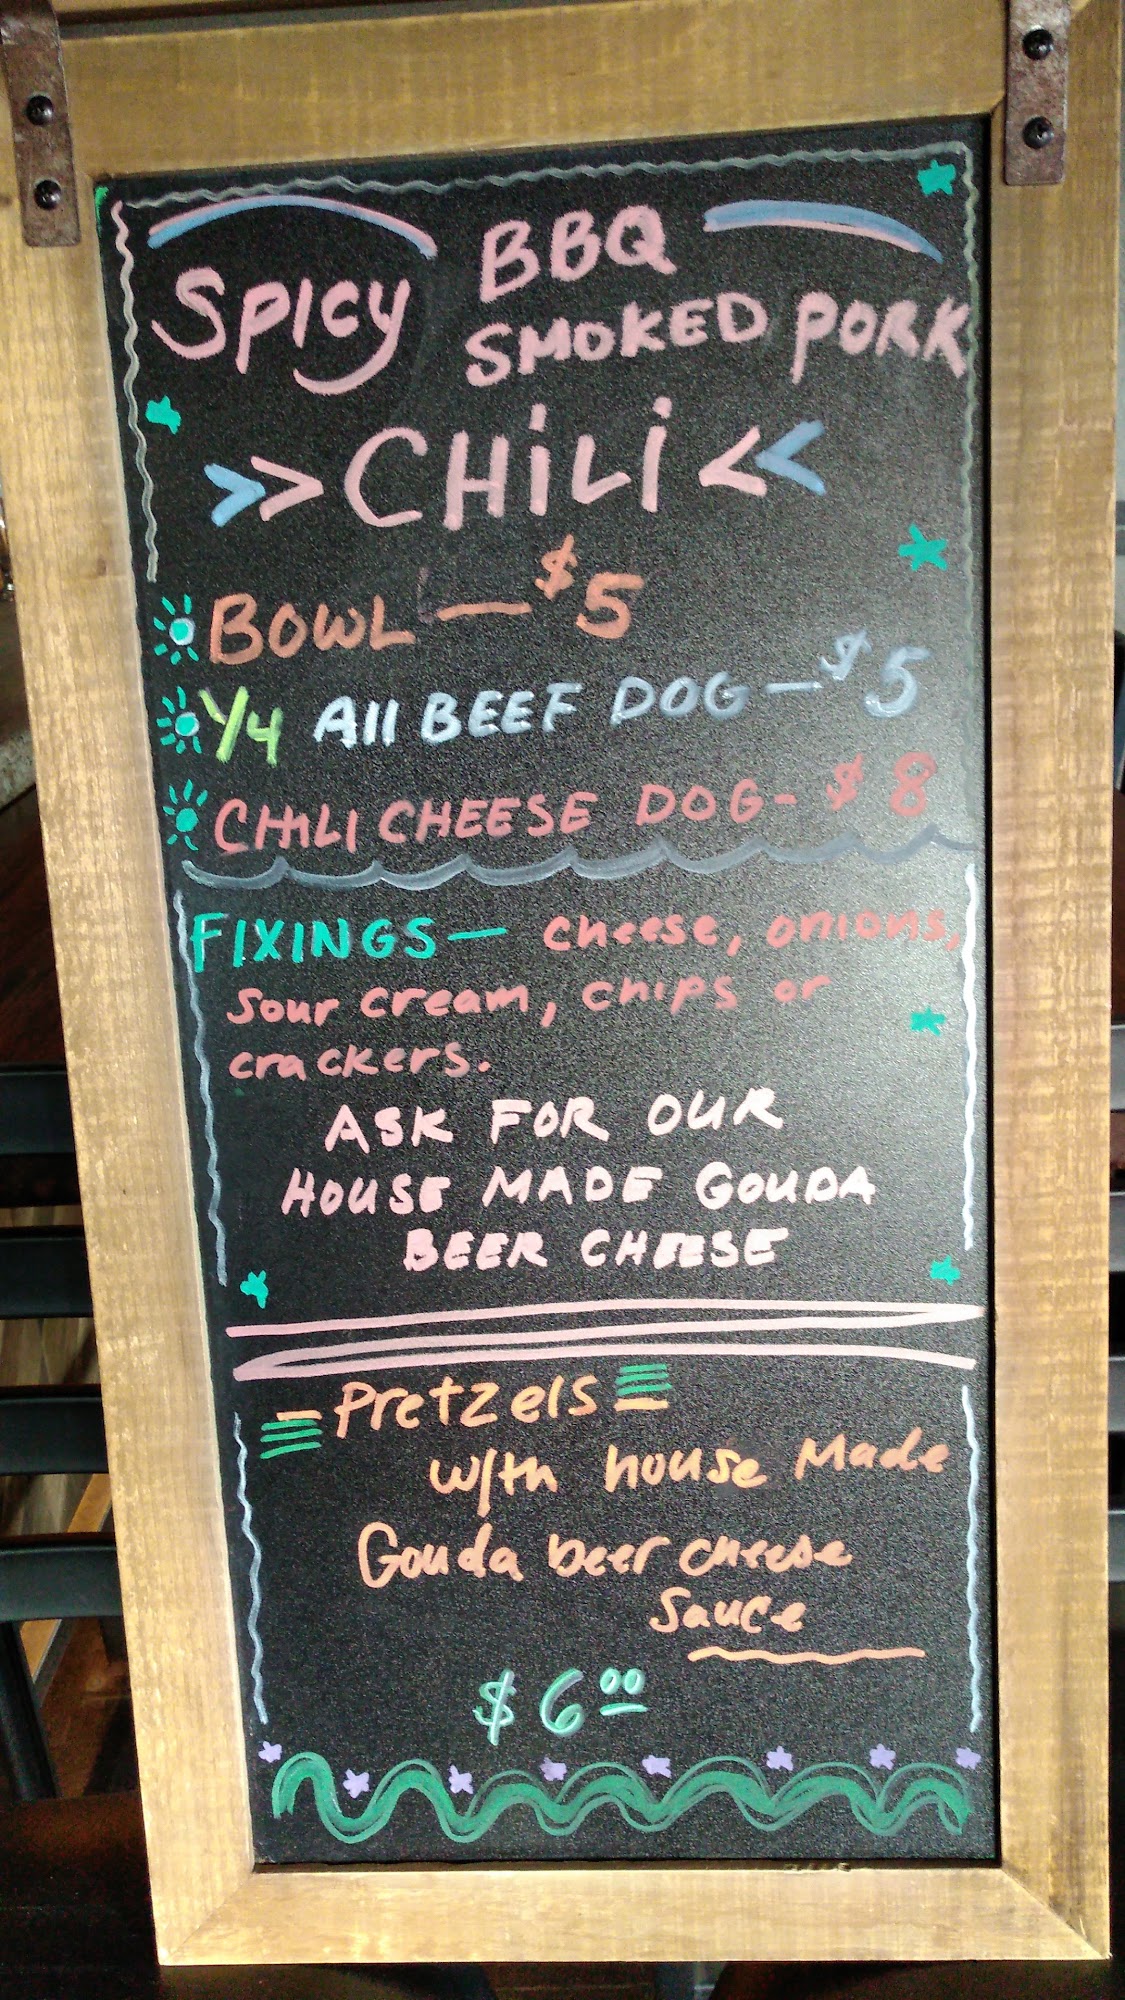 Spicy BBQ
SMOKED PORK
>> CHiLi <<
BOWL — $5
1/4 All BEEF DOG — $5
CHILI CHEESE DOG - $8
FIXINGS — cheese, onions,
sour cream, chips or
crackers.
ASK FOR OUR
HOUSE MADE GOUDA
BEER CHEESE
Pretzels
w/th house Made
Gouda beer cheese
Sauce
$6.00